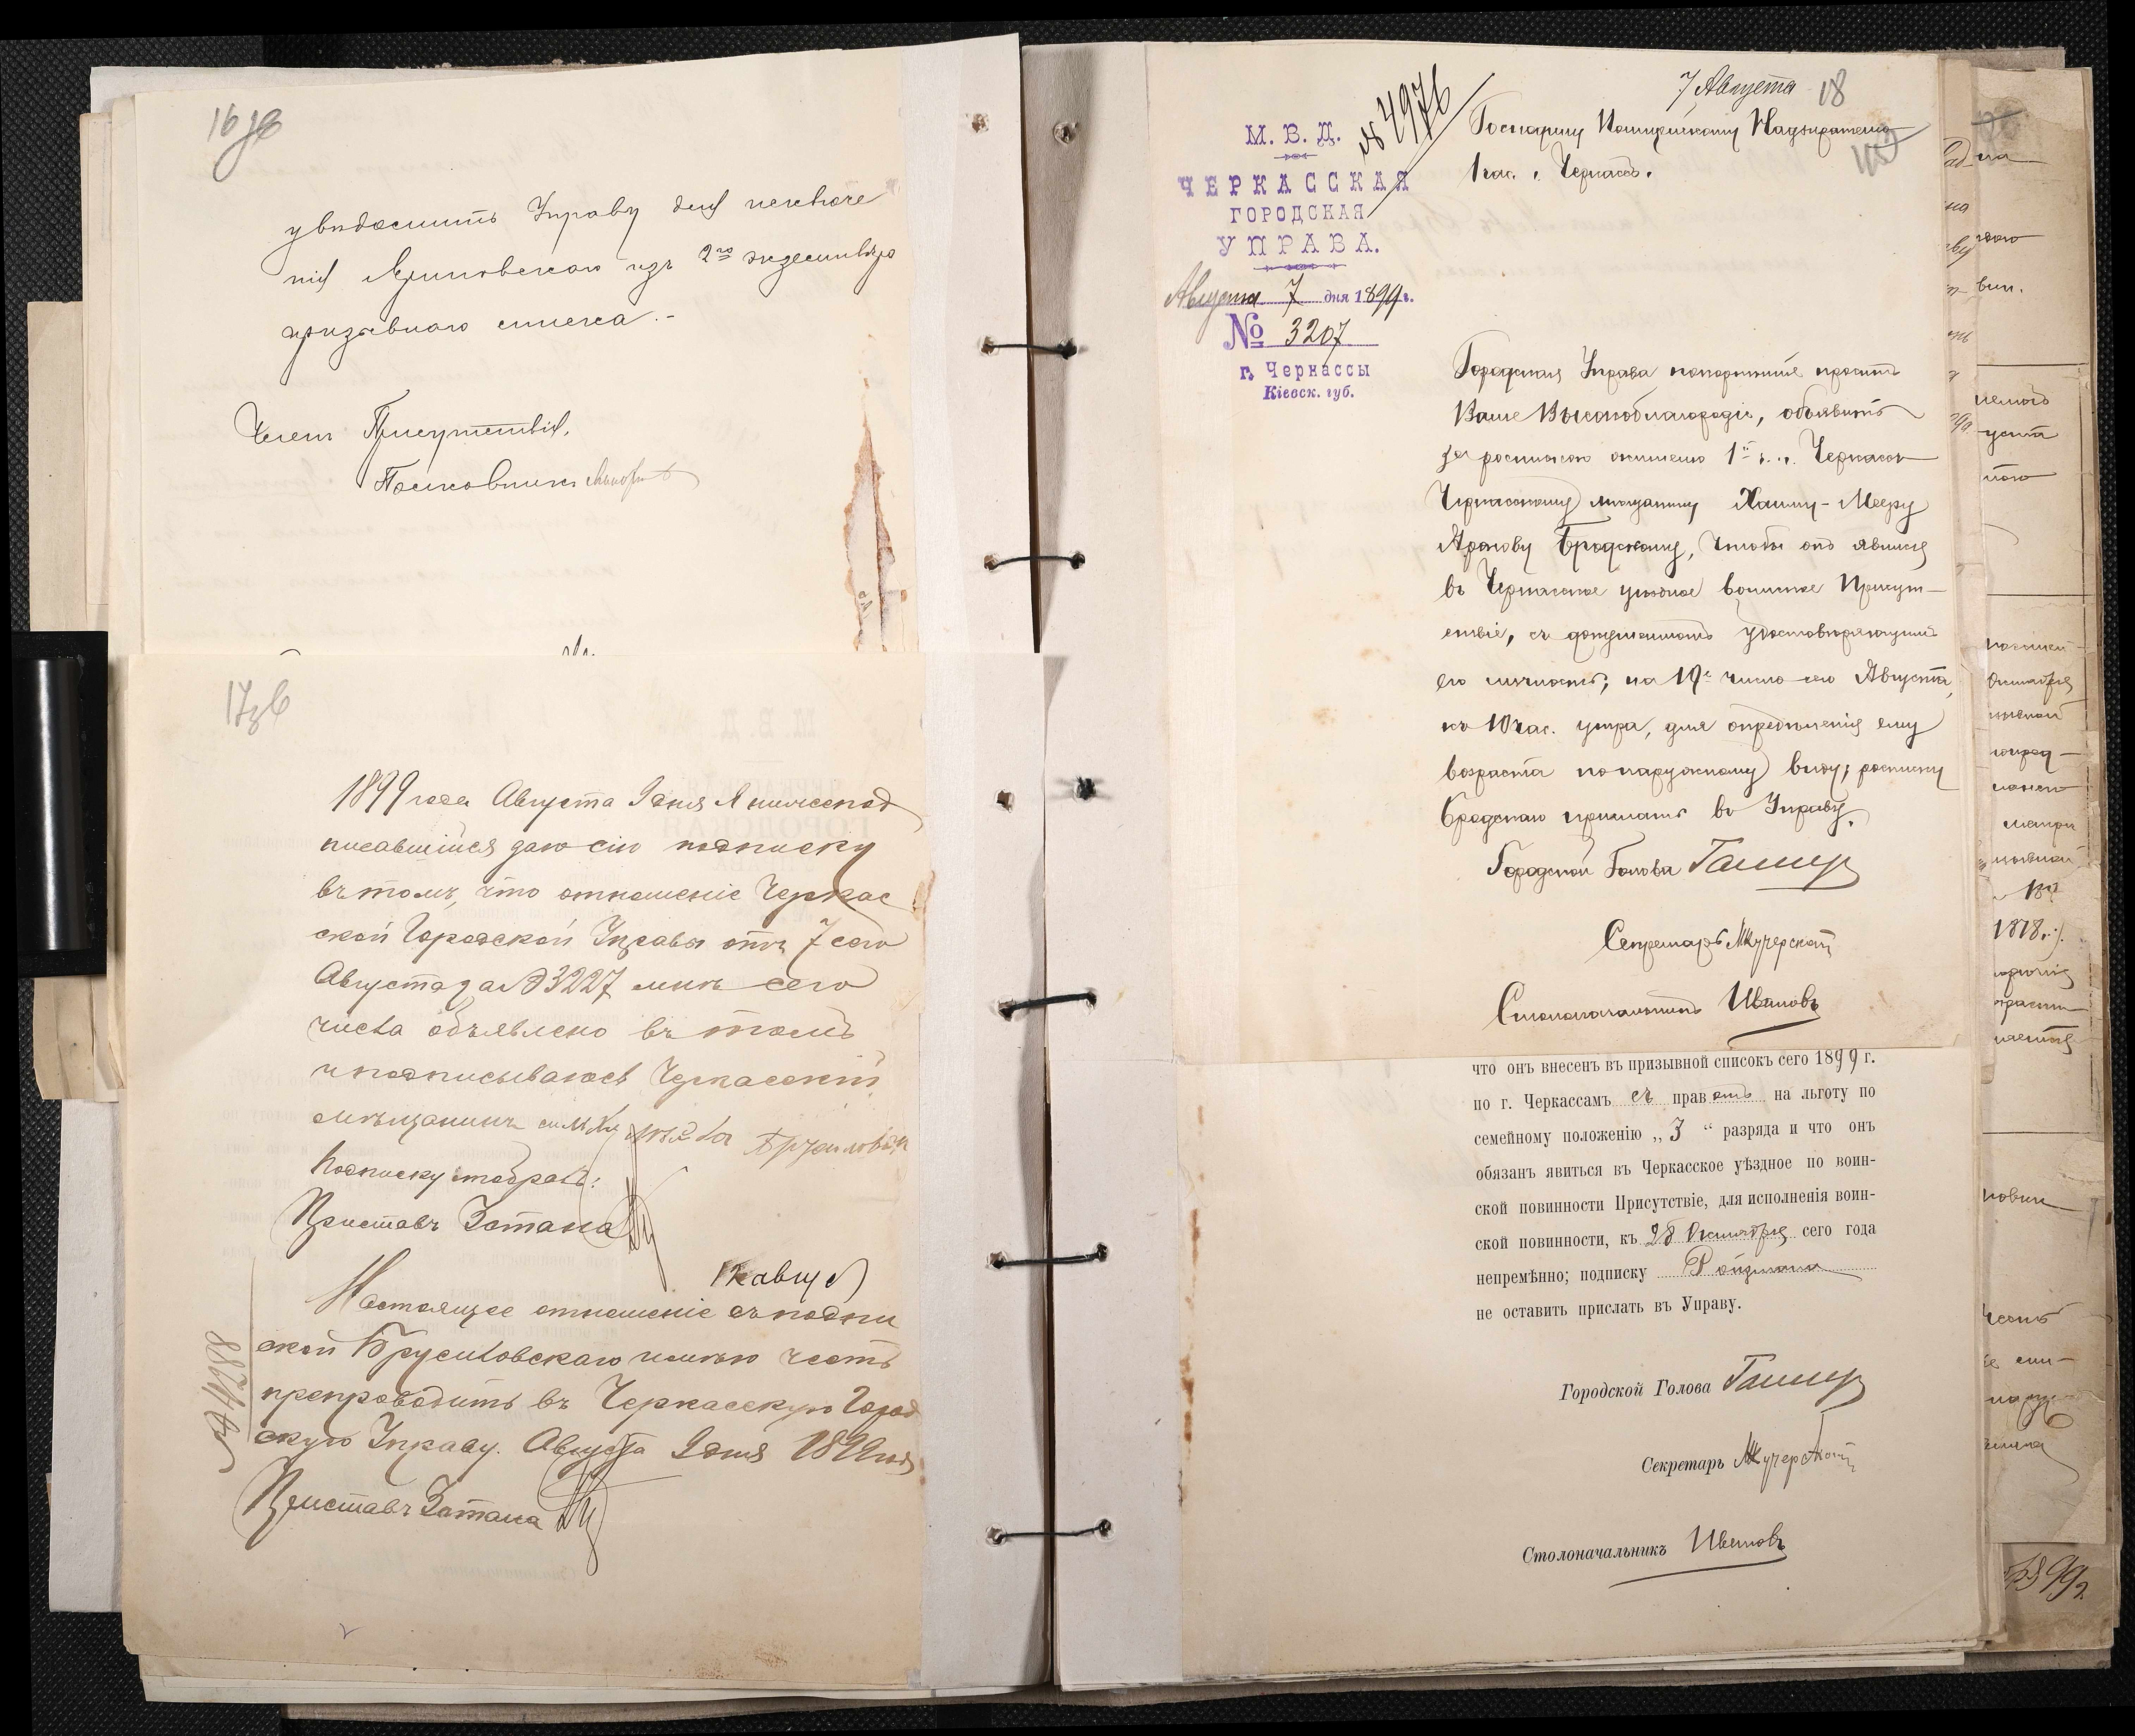 16 об
увѣдомить Управу для исключе
нія Липовскаго изъ 2го экземпляра
призывного списка.-
Членъ Присутствія,
Полковникъ
17 об
1899 года Августа 9 дня Я нижепод
писавшійся даю сію подписку
въ томъ, что отношеніе Черкас
ской Городской Управы отъ 7 сего
Августа за № 3227 мнѣ сего
числа объявлено въ томъ
и подписываюсь Черкасскій
мѣщанинъ
Подписку отобралъ:
Приставъ
12 авгус
Настоящее отношеніе съ подпи
ской Брусиловскаго имѣю честь
препроводить въ Черкасскую Город
скую Управу. Августа 9 дня 1899 года
Приставъ
№ 4788
7 Августа
18
№ 4976
М. В. Д.
ЧЕРКАССКАЯ
ГОРОДСКАЯ
УПРАВА.
Августа 7 дня 1899 г.
№ 3207
г. Черкассы
Кіевск. губ.
Господину Полицейскому Надзирателю
1 час. г. Черкассъ.
Городская Управа покорнѣйше проситъ
Ваше Высокоблагородіе, объявить
за роспискою жителю 1й ч. г. Черкассъ
Черкасскому мѣщанину Хаиму-Мееру
Аронову Бродскому, чтобы онъ явился
въ Черкасское уѣздное воинское Присут-
ствіе, съ документомъ удостовѣряющимъ
его личность, на 19е число сего Августа,
къ 10 час. утра, для опредѣленія ему
возраста по наружному виду; росписку
Бродскаго прислать въ Управу.
Городской Голова
Секретарь Мкучерскій
Столоначальникъ Ивановъ
что онъ внесенъ въ призывной списокъ сего 1899 г.
по г. Черкассамъ съ правомъ на льготу по
семейному положенію „3“ разряда и что онъ
обязанъ явиться въ Черкасское уѣздное по воин-
ской повинности Присутствіе, для исполненія воин-
ской повинности, къ 28 Октября сего года
непремѣнно; подписку Ройзмана
не оставить прислать въ Управу.
Городской Голова
Секретарь Мкучерскій
Столоначальникъ Ивановъ
вин.
Октября
1878 г.).
1899 г.